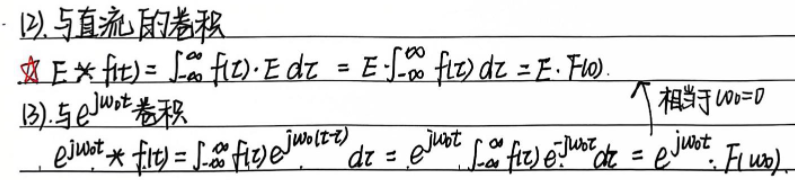 (2).与直流E的卷积
☆ E * f(t) = ∫_{-∞}^{∞} f(τ)·E dτ = E·∫_{-∞}^{∞} f(τ) dτ = E·F(0).
(3).与e^{jω₀t}卷积
相当于ω₀=0
e^{jω₀t} * f(t) = ∫_{-∞}^{∞} f(τ) e^{jω₀(t-τ)} dτ = e^{jω₀t} ∫_{-∞}^{∞} f(τ) e^{-jω₀τ} dτ = e^{jω₀t}·F(ω₀).